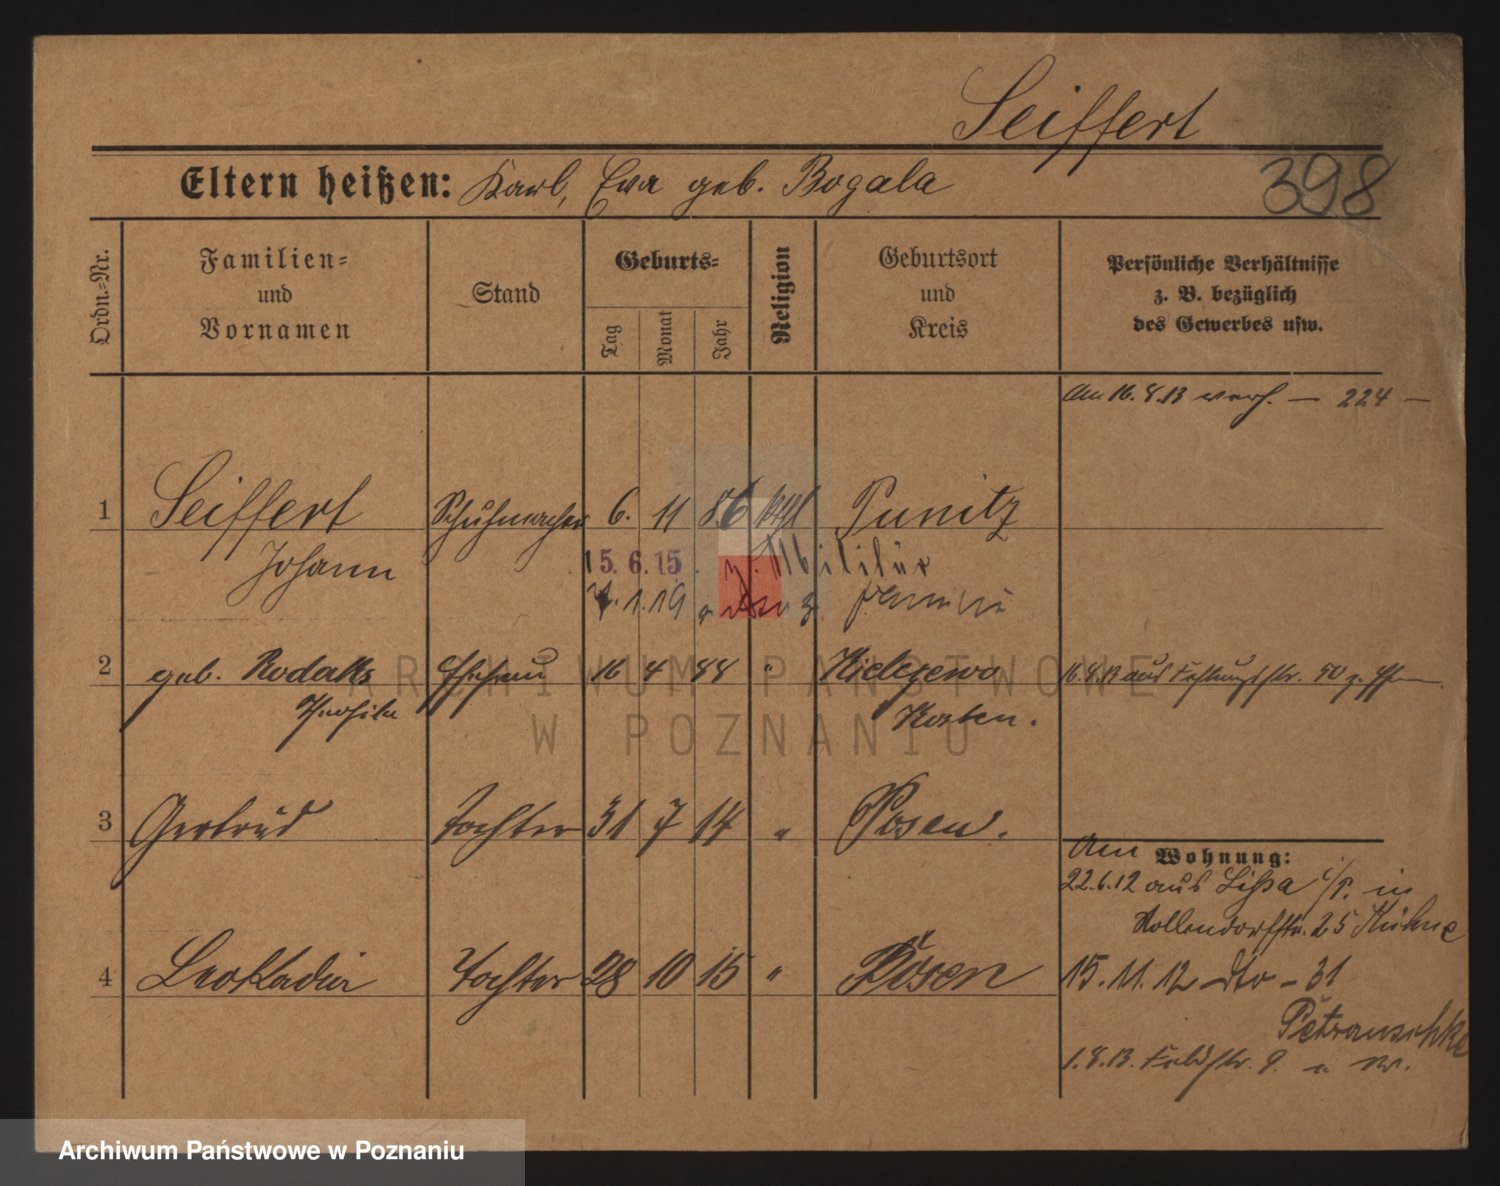 Seiffert
398
Eltern heißen: Karl, Eva geb. Bogala
Ordn.-Nr.
Familien-
und
Vornamen
Stand
Geburts-
Tag
Monat
Jahr
Religion
Geburtsort
und
Kreis
Persönliche Verhältnisse
z. B. bezüglich
des Gewerbes usw.
Am 16.8.13 verh. — 224 —
1 Seiffert Schuhmacher 6. 11 86 kath Punitz
Johann
15.6.15. z. Militär
1.19
2 geb. Rodak Ehefrau 16 4 88 " Kielczewo 16.8.13 aus
Kosten.
3 Gertrud Tochter 31 7 14 " Posen.
Am Wohnung:
22.6.12 aus Lissa i/P. in
Nollendorffstr. 25 Kühne
4 Leokadia Tochter 28 10 15 " Posen 15.11.12 dto - 31
Petranschke
1.8.13. Feldstr. 9.
ARCHIWUM PAŃSTWOWE
W POZNANIU
Archiwum Państwowe w Poznaniu